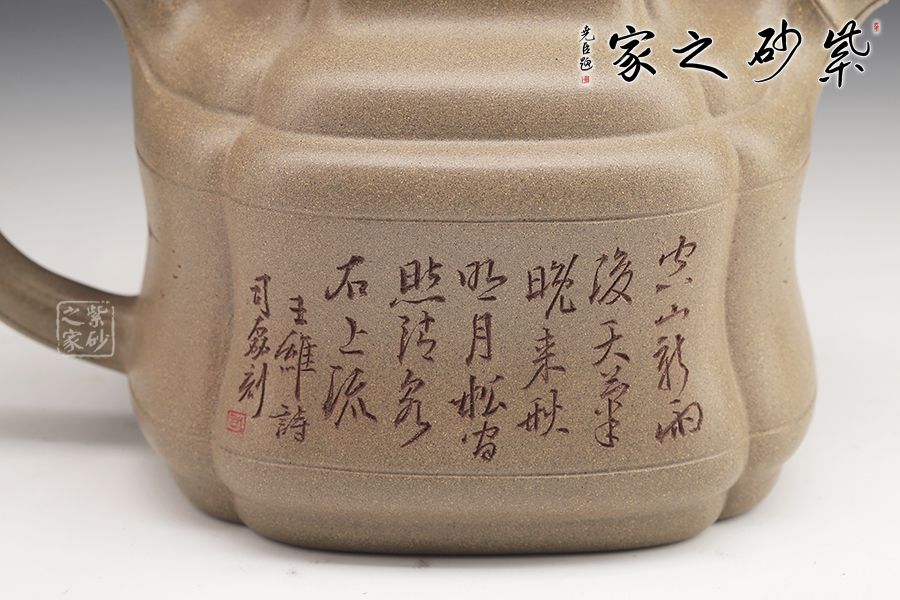 紫砂之家
尧臣题
空山新雨
後天氣
晚来秋
明月松间
照清泉
石上流
王維詩
司刻
紫砂
之家